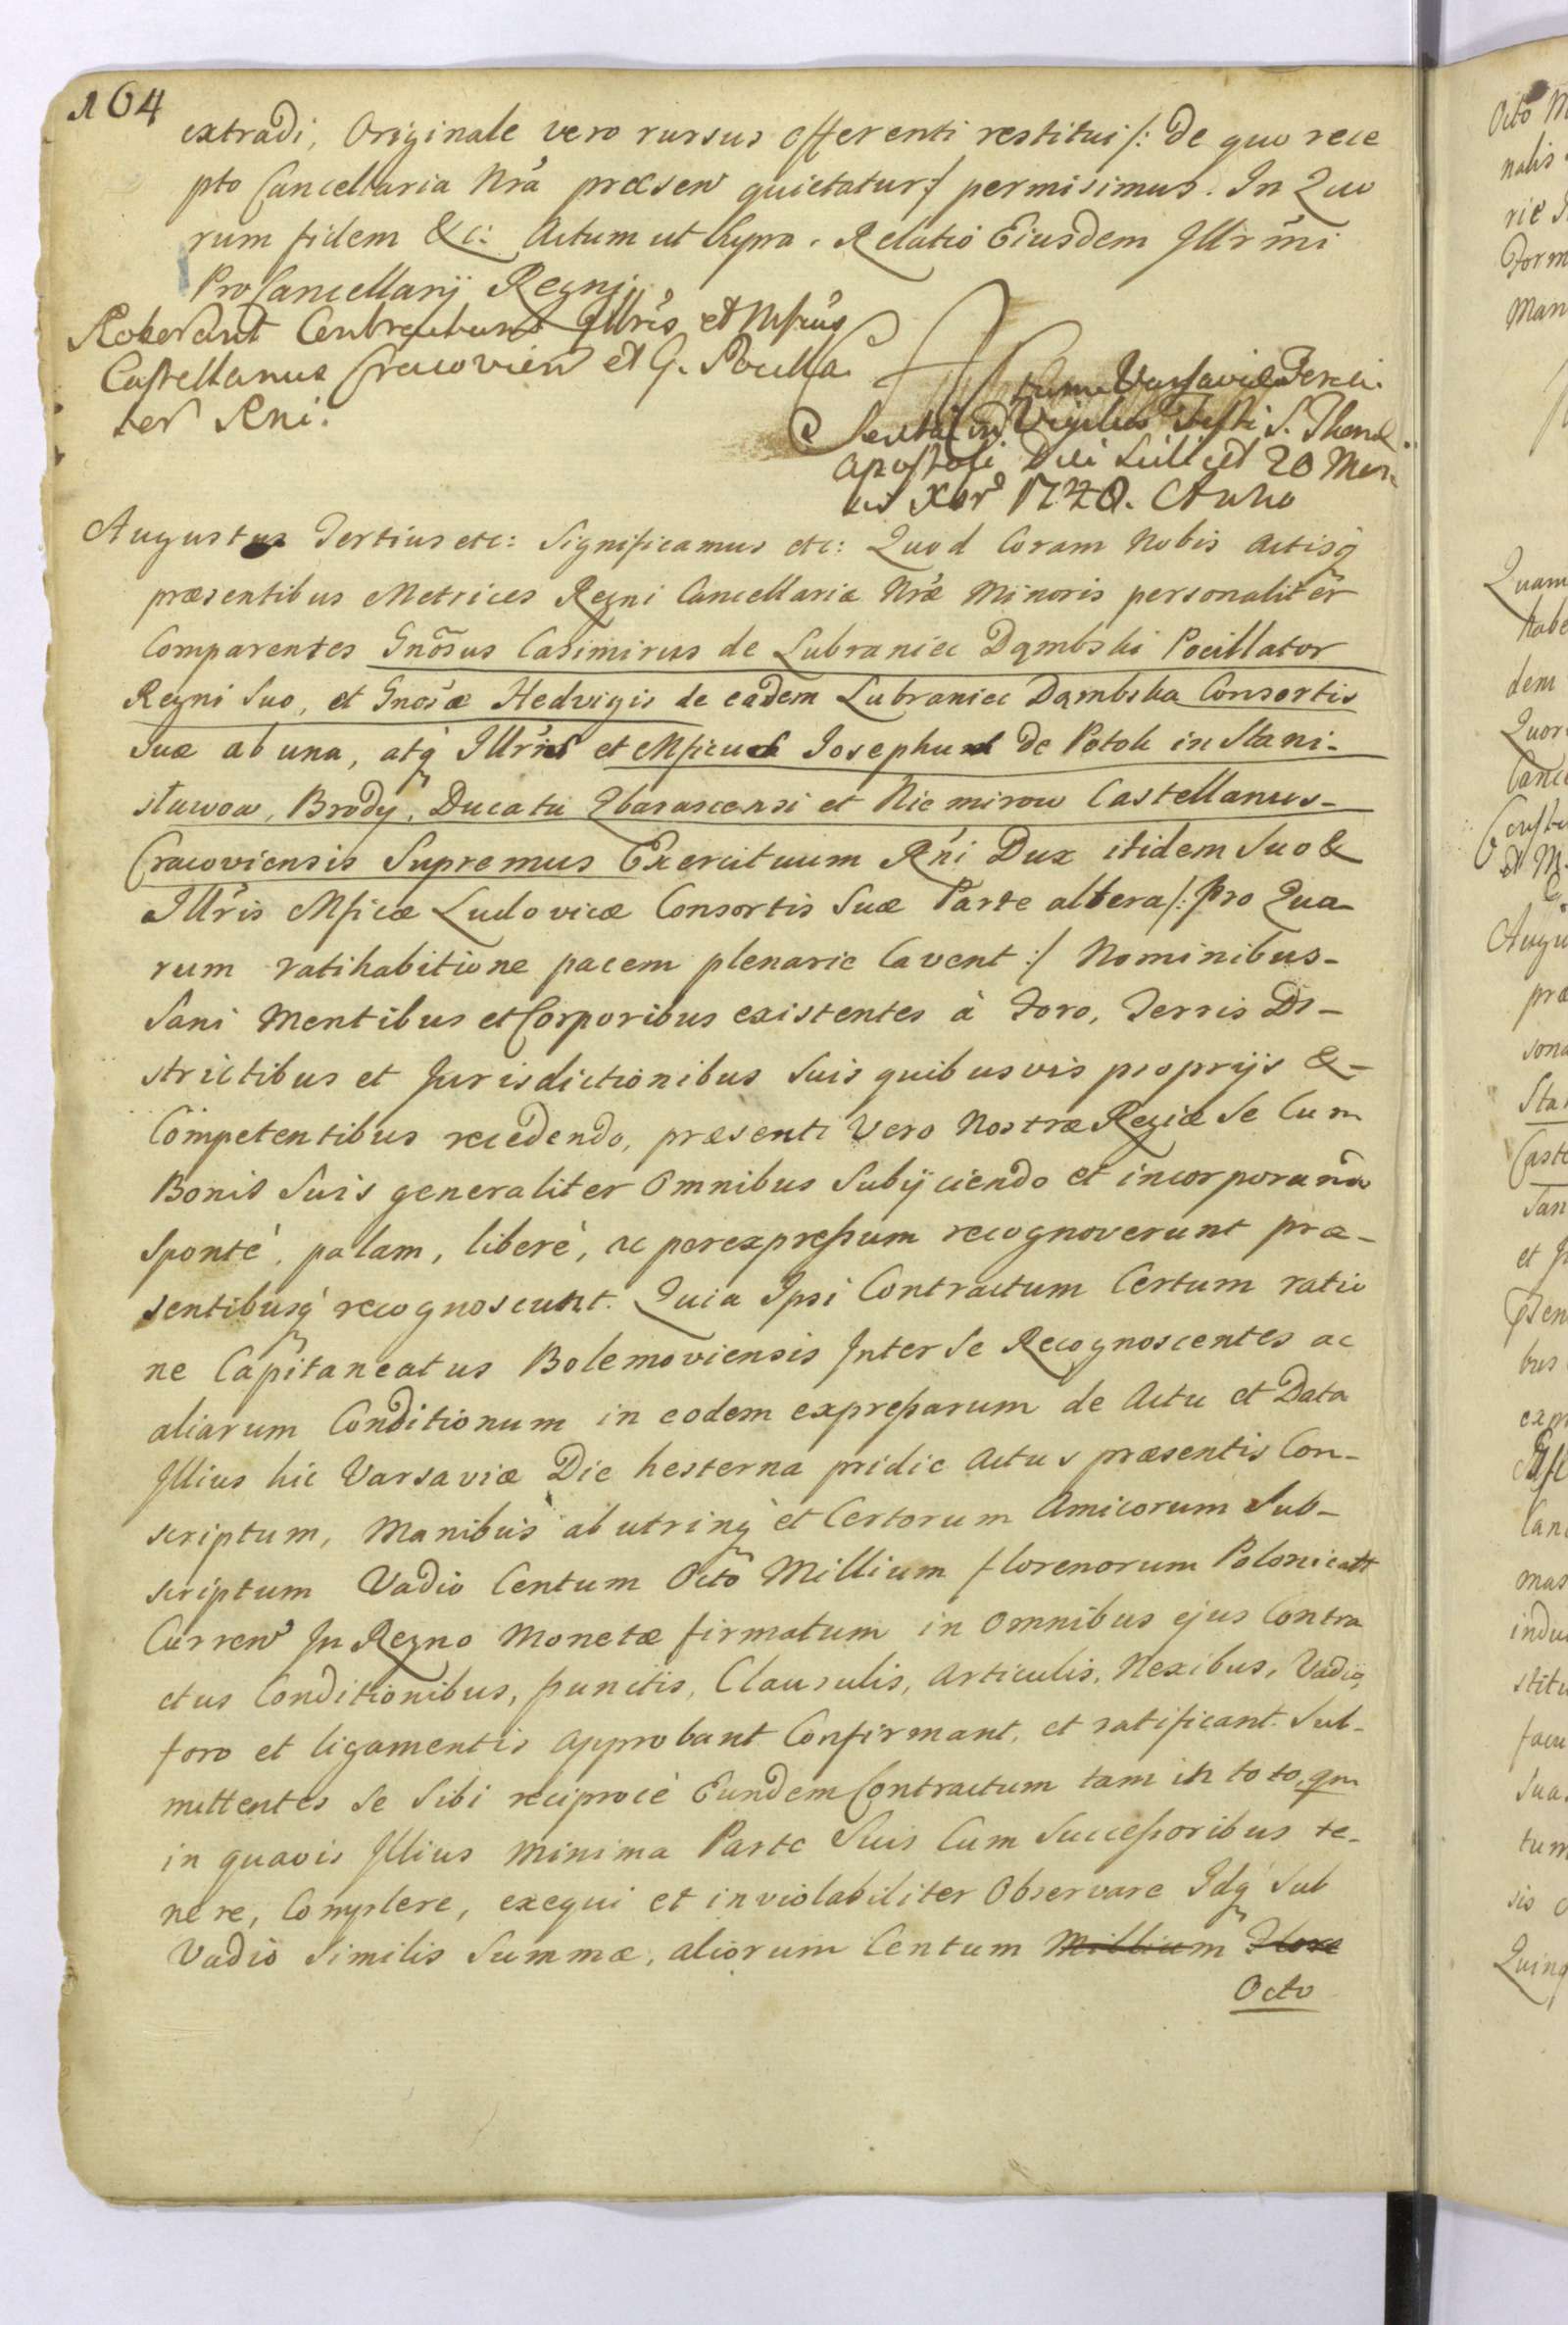 164
extradi, Originale vero rursus offerenti restitui /: de quo rece
pto Cancellaria Nrã præsen quietatur :/ permisimus. In Quo
rum fidem &c: Actum ut Supra. Relatio Eiusdem Illrmi
ProCancellarij Regni.
Roberant Contractum Illris et Mficus
Castellanus Cracovien et G. Pocilla
tor Rni.
Actum Varsaviæ Feria
Sexta in Vigilia Festi S. Thomæ
Apostoli Die Scilicet 20 Men
sis Xbr 1740. Anno
Augustus Tertius etc: Significamus etc: Quod Coram Nobis Actisq
præsentibus Metrices Regni Cancellariæ Nræ Minoris personaliter
Comparentes Gnosus Casimirus de Lubraniec Dąmbski Pocillator
Regni Suo, et Gnosæ Hedvigis de eadem Lubraniec Dąmbska Consortis
Suæ ab una, atq Illris et Mficus Josephus de Potok in Stani-
sławow, Brody, Ducatu Zbarascensi et Niemirow Castellanus-
Cracoviensis Supremus Exercituum Rni Dux itidem Suo &
Illris Mficæ Ludovicæ Consortis Suæ Parte altera /: pro Qua-
rum ratihabitione pacem plenarie Cavent :/ Nominibus-
Sani Mentibus et Corporibus existentes à Foro, Terris Di-
strictibus et Jurisdictionibus Suis quibusvis proprijs &-
Competentibus recedendo, præsenti Vero Nostræ Regiæ Se Cum
Bonis Suis generaliter Omnibus Subijciendo et incorporando
Sponté, palam, liberè, ac per expressum recognoverunt præ-
sentibusq recognoscunt. Quia Ipsi Contractum Certum ratio
ne Capitaneatus Bolemoviensis Inter Se Recognoscentes ac
aliarum Conditionum in eodem expressarum de Actu et Data
Illius hic Varsaviæ Die hesterna pridie Actus præsentis Con-
scriptum, Manibus ab utrinq et Certorum Amicorum Sub-
scriptum Vadio Centum Octo Millium florenorum Polonicalt
Curren In Regno Monetæ firmatum in Omnibus ejus Contra
ctus Conditionibus, punctis, Clausulis, Articulis, Nexibus, Vadijs,
foro et ligamentis Approbant Confirmant, et ratificant. Sub-
mittentes Se Sibi reciprocè Eundem Contractum tam in toto, qm
in quavis Illius Minima Parte Suis Cum Successoribus te-
nere, Complere, exequi et inviolabiliter Observare Idq Sub
Vadio Similis Summæ, aliorum Centum Millium Flore
Octo